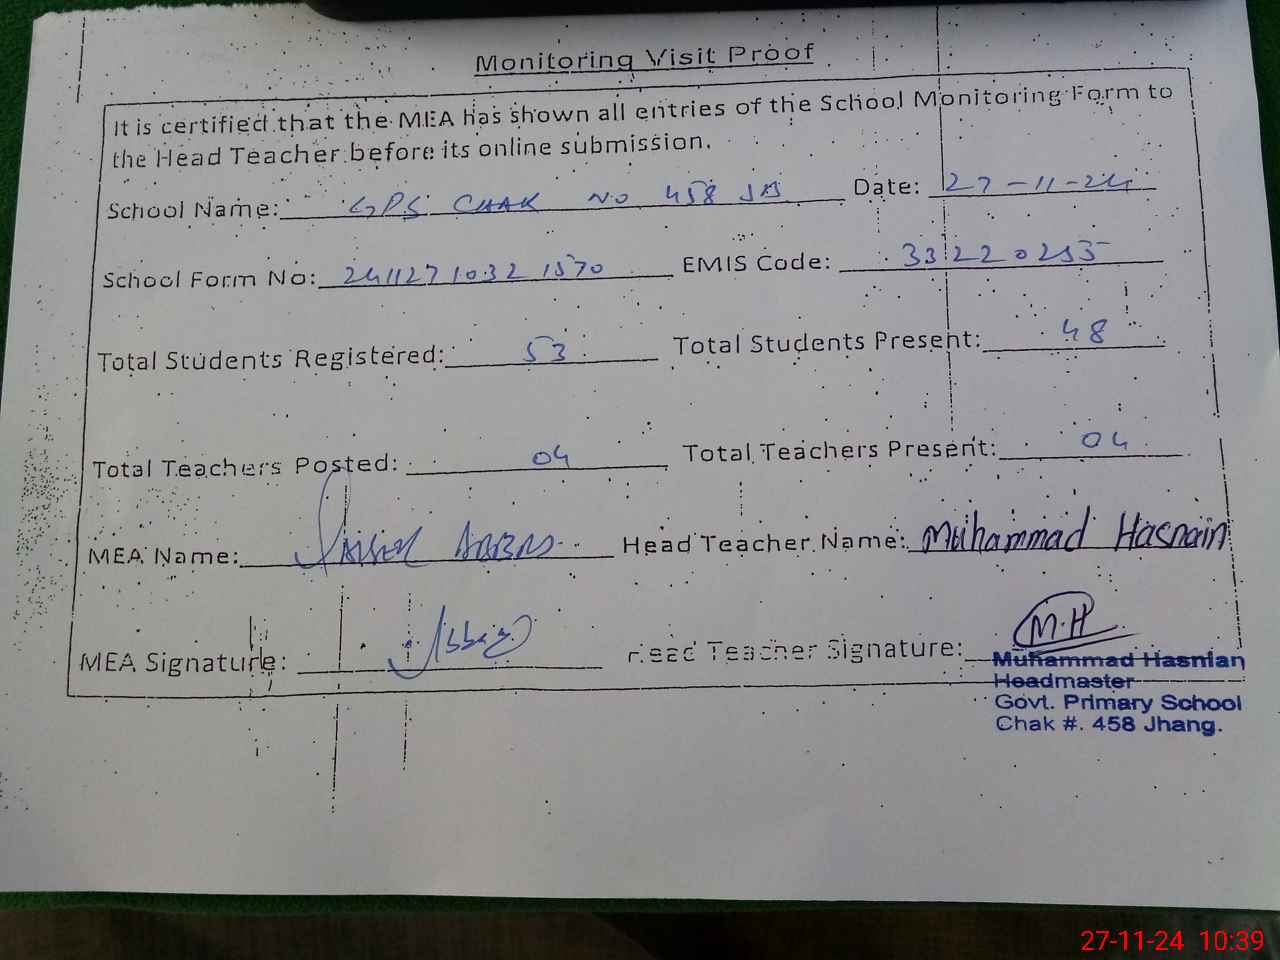 Monitoring Visit Proof
It is certified that the MEA has shown all entries of the School Monitoring Form to
the Head Teacher before its online submission.
School Name: GPS CHAK NO 458 JB Date: 27-11-24
School Form No: 241127 1032 1570 EMIS Code: 33220255
Total Students Registered: 53 Total Students Present: 48
Total Teachers Posted: 04 Total Teachers Present: 04
MEA Name: ABBAS Head Teacher Name: Muhammad Hasnain
MEA Signature: Head Teacher Signature: M.H
Muhammad Hasnian
Headmaster
Govt. Primary School
Chak #. 458 Jhang.
27-11-24 10:39